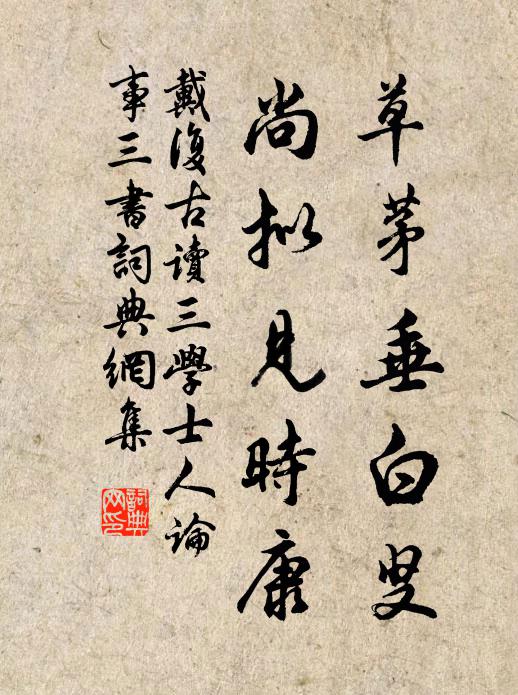 草茅垂白叟
尚拟見時康
戴復古讀三學士人論
事三書詞典網集
詞典
网印